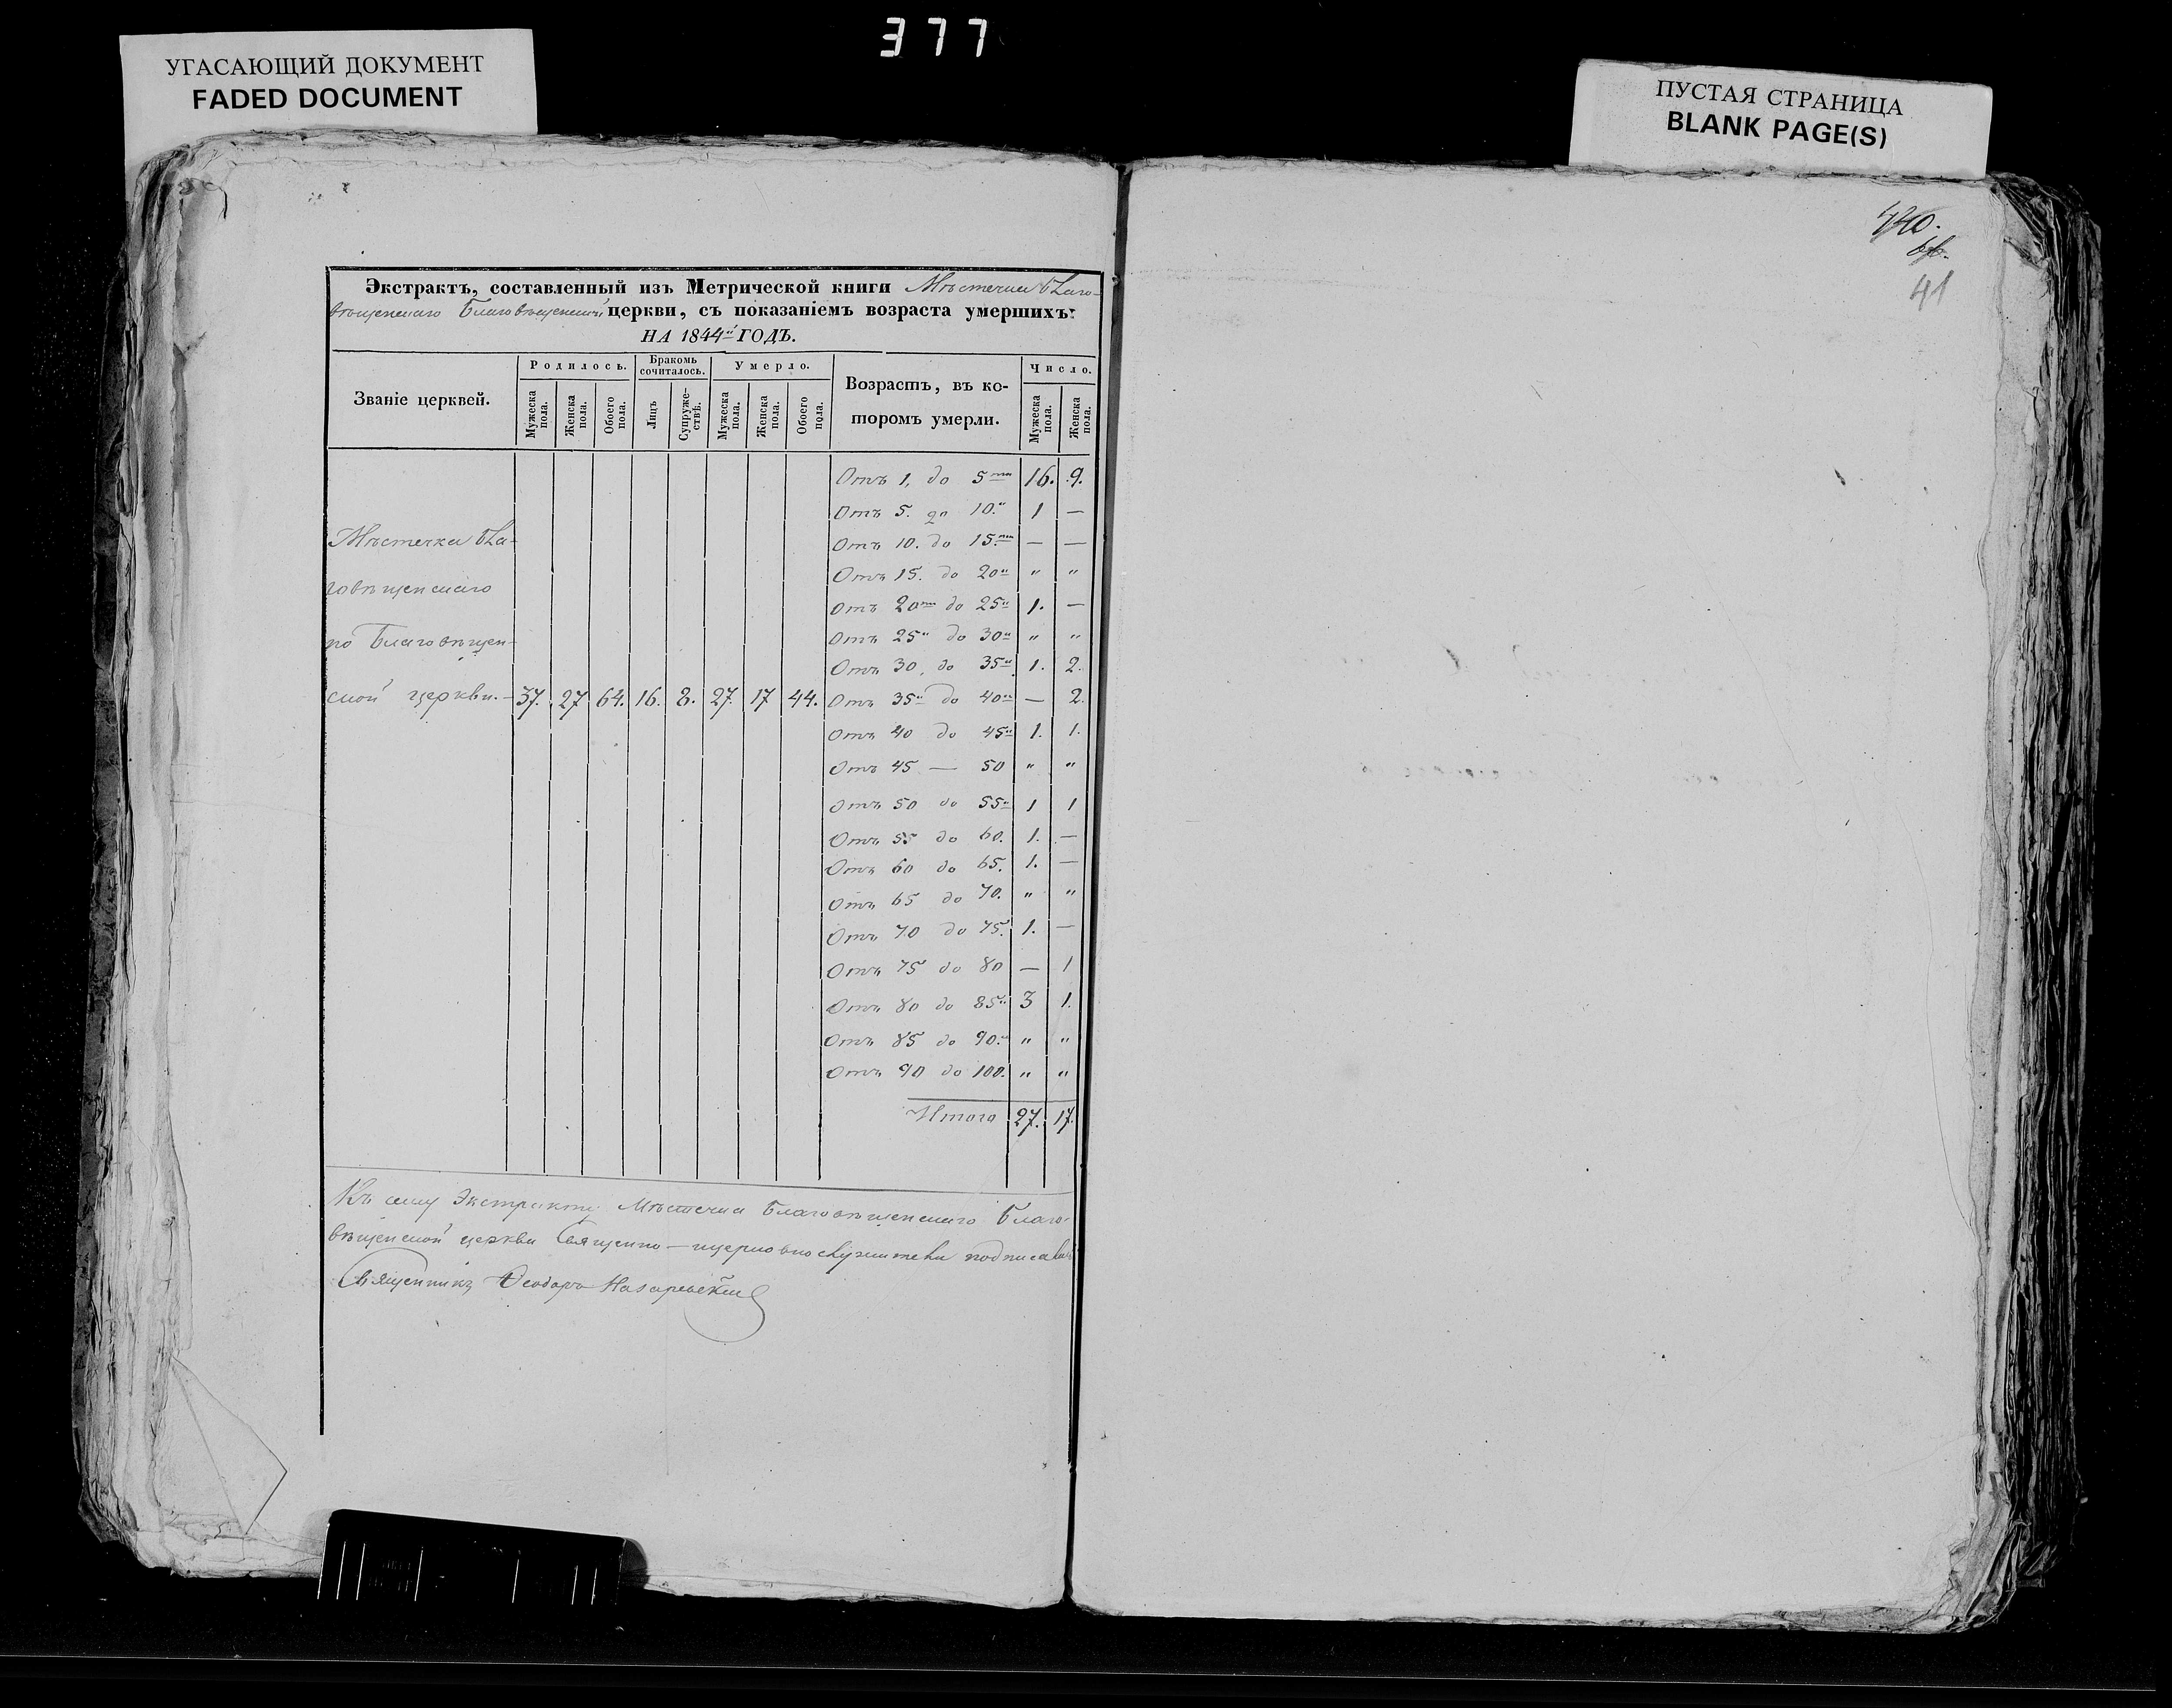 377
УГАСАЮЩИЙ ДОКУМЕНТ
FADED DOCUMENT
ПУСТАЯ СТРАНИЦА
BLANK PAGE(S)
41
Экстрактъ, составленный изъ Метрической книги Мѣстечка Благо-
вѣщенскаго Благовѣщенской церкви, съ показаніемъ возраста умершихъ:
НА 1844й ГОДЪ.
Званіе церквей. Родилось. Бракомъ сочиталось. Умерло. Возрастъ, въ ко-торомъ умерли. Число.
Мужеска пола. Женска пола. Обоего пола. Лицъ Супруже-ствъ. Мужеска пола. Женска пола. Обоего пола. Мужеска пола. Женска пола.
Отъ 1, до 5ти 16. 9.
Отъ 5. до 10." 1 —
Мѣстечка Бла-
Отъ 10. до 15.ти — —
Отъ 15. до 20" " "
говѣщенскаго
Отъ 20ти до 25" 1. —
по Благовѣщен-
Отъ 25" до 30" " "
Отъ 30. до 35" 1. 2.
ской церкви.— 37. 27 64. 16. 8. 27. 17 44. Отъ 35" до 40" — 2.
Отъ 40 до 45" 1. 1.
Отъ 45 — 50 " "
Отъ 50 до 55" 1 1
Отъ 55 до 60. 1. —
Отъ 60 до 65. 1. —
Отъ 65 до 70. " "
Отъ 70 до 75. 1. —
Отъ 75 до 80 — 1
Отъ 80 до 85" 3 1.
Отъ 85 до 90." " "
Отъ 90 до 100. " "
Итого 27. 17.
Къ сему Экстракту Мѣстечка Благовѣщенскаго Благо-
вѣщенской церкви Священно-церковнослужители подписались
Священникъ Ѳеодоръ Назаревскій